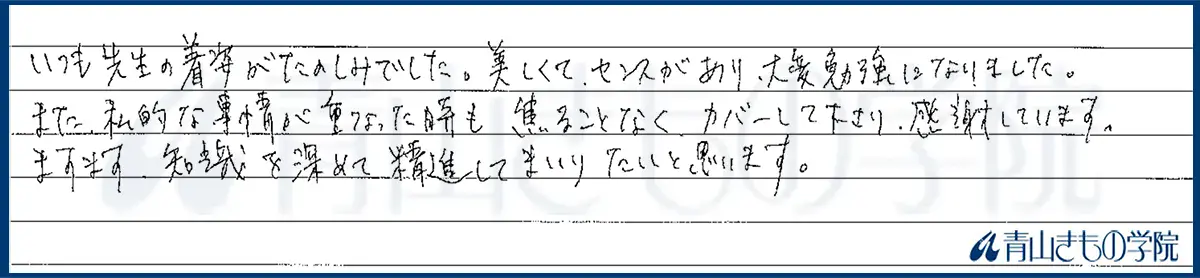 いつも先生の着姿がたのしみでした。美しくて、センスがあり、大変勉強になりました。
また、私的な事情が重なった時も焦ることなく、カバーして下さり、感謝しています。
ますます、知識を深めて精進してまいりたいと思います。
青山きもの学院